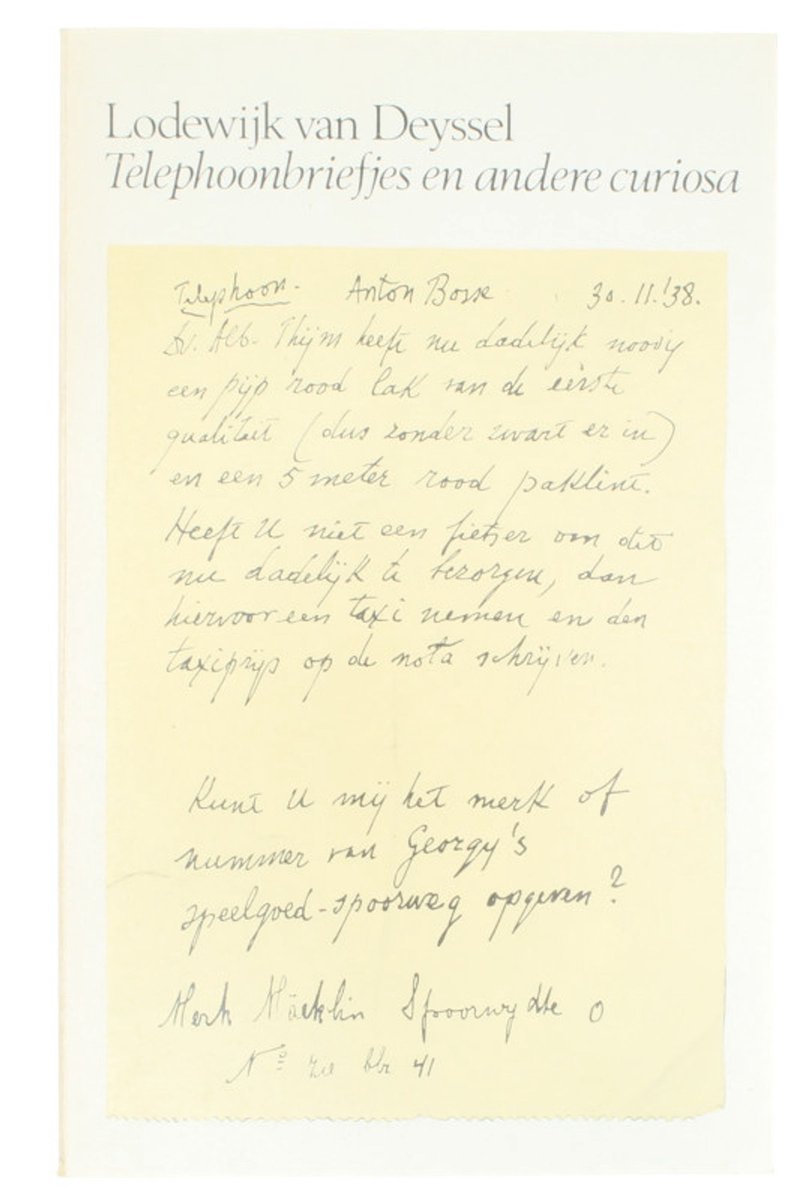 Lodewijk van Deyssel
Telephoonbriefjes en andere curiosa
Telephoon. Anton Bosse 30.11.'38.
Dr. Alb. Thijm heeft nu dadelijk noodig
een pijp rood lak van de eerste
qualiteit (dus zonder zwart er in)
en een 5 meter rood paklint.
Heeft U niet een fietser om dit
nu dadelijk te bezorgen, dan
hiervoor een taxi nemen en den
taxiprijs op de nota schrijven.
Kunt U mij het merk of
nummer van Georgy's
speelgoed-spoorweg opgeven?
Merk Märklin Spoorwydte 0
No zie 41